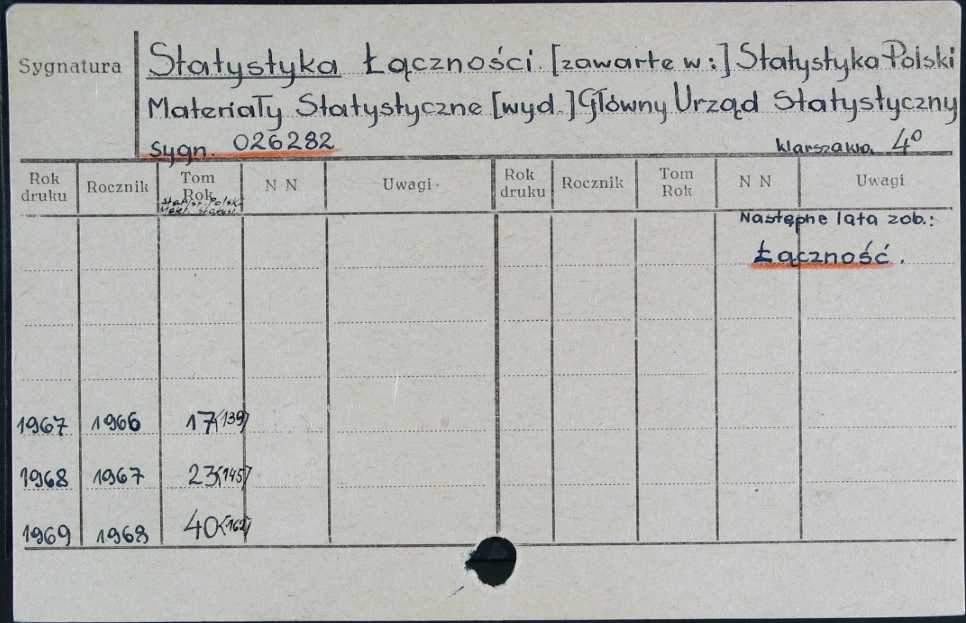 Sygnatura
Statystyka Łączności. [zawarte w:] Statystyka Polski
Materiały Statystyczne [wyd.] Główny Urząd Statystyczny
Sygn. 026282 Warszawa. 4⁰
Rok druku Rocznik Tom Rok N N Uwagi Rok druku Rocznik Tom Rok N N Uwagi
Następne lata zob.:
Łączność.
1967 1966 17(139)
1968 1967 23(145)
1969 1968 40(162)